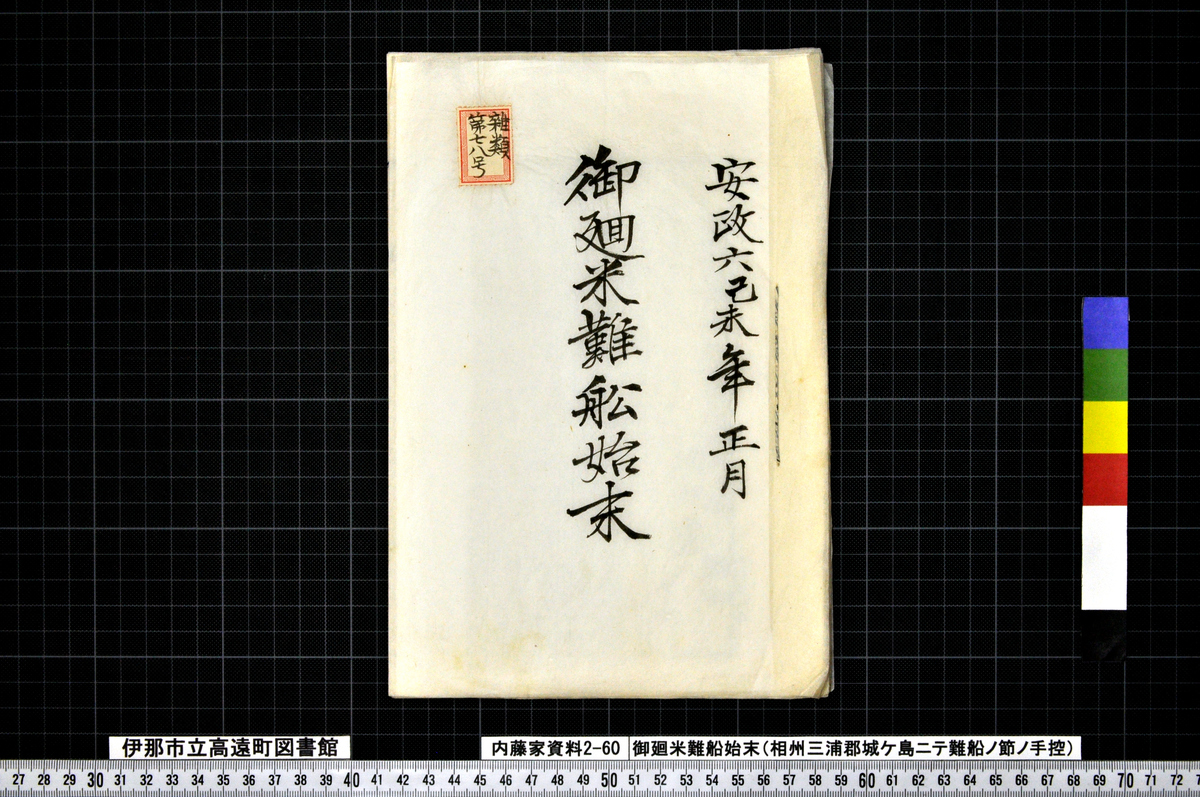 安政六己未年正月
御廻米難舩始末
雑類
第七八号
伊那市立高遠町図書館
内藤家資料2-60
御廻米難船始末(相州三浦郡城ケ島ニテ難船ノ節ノ手控)
27 28 29 30 31 32 33 34 35 36 37 38 39 40 41 42 43 44 45 46 47 48 49 50 51 52 53 54 55 56 57 58 59 60 61 62 63 64 65 66 67 68 69 70 71 72